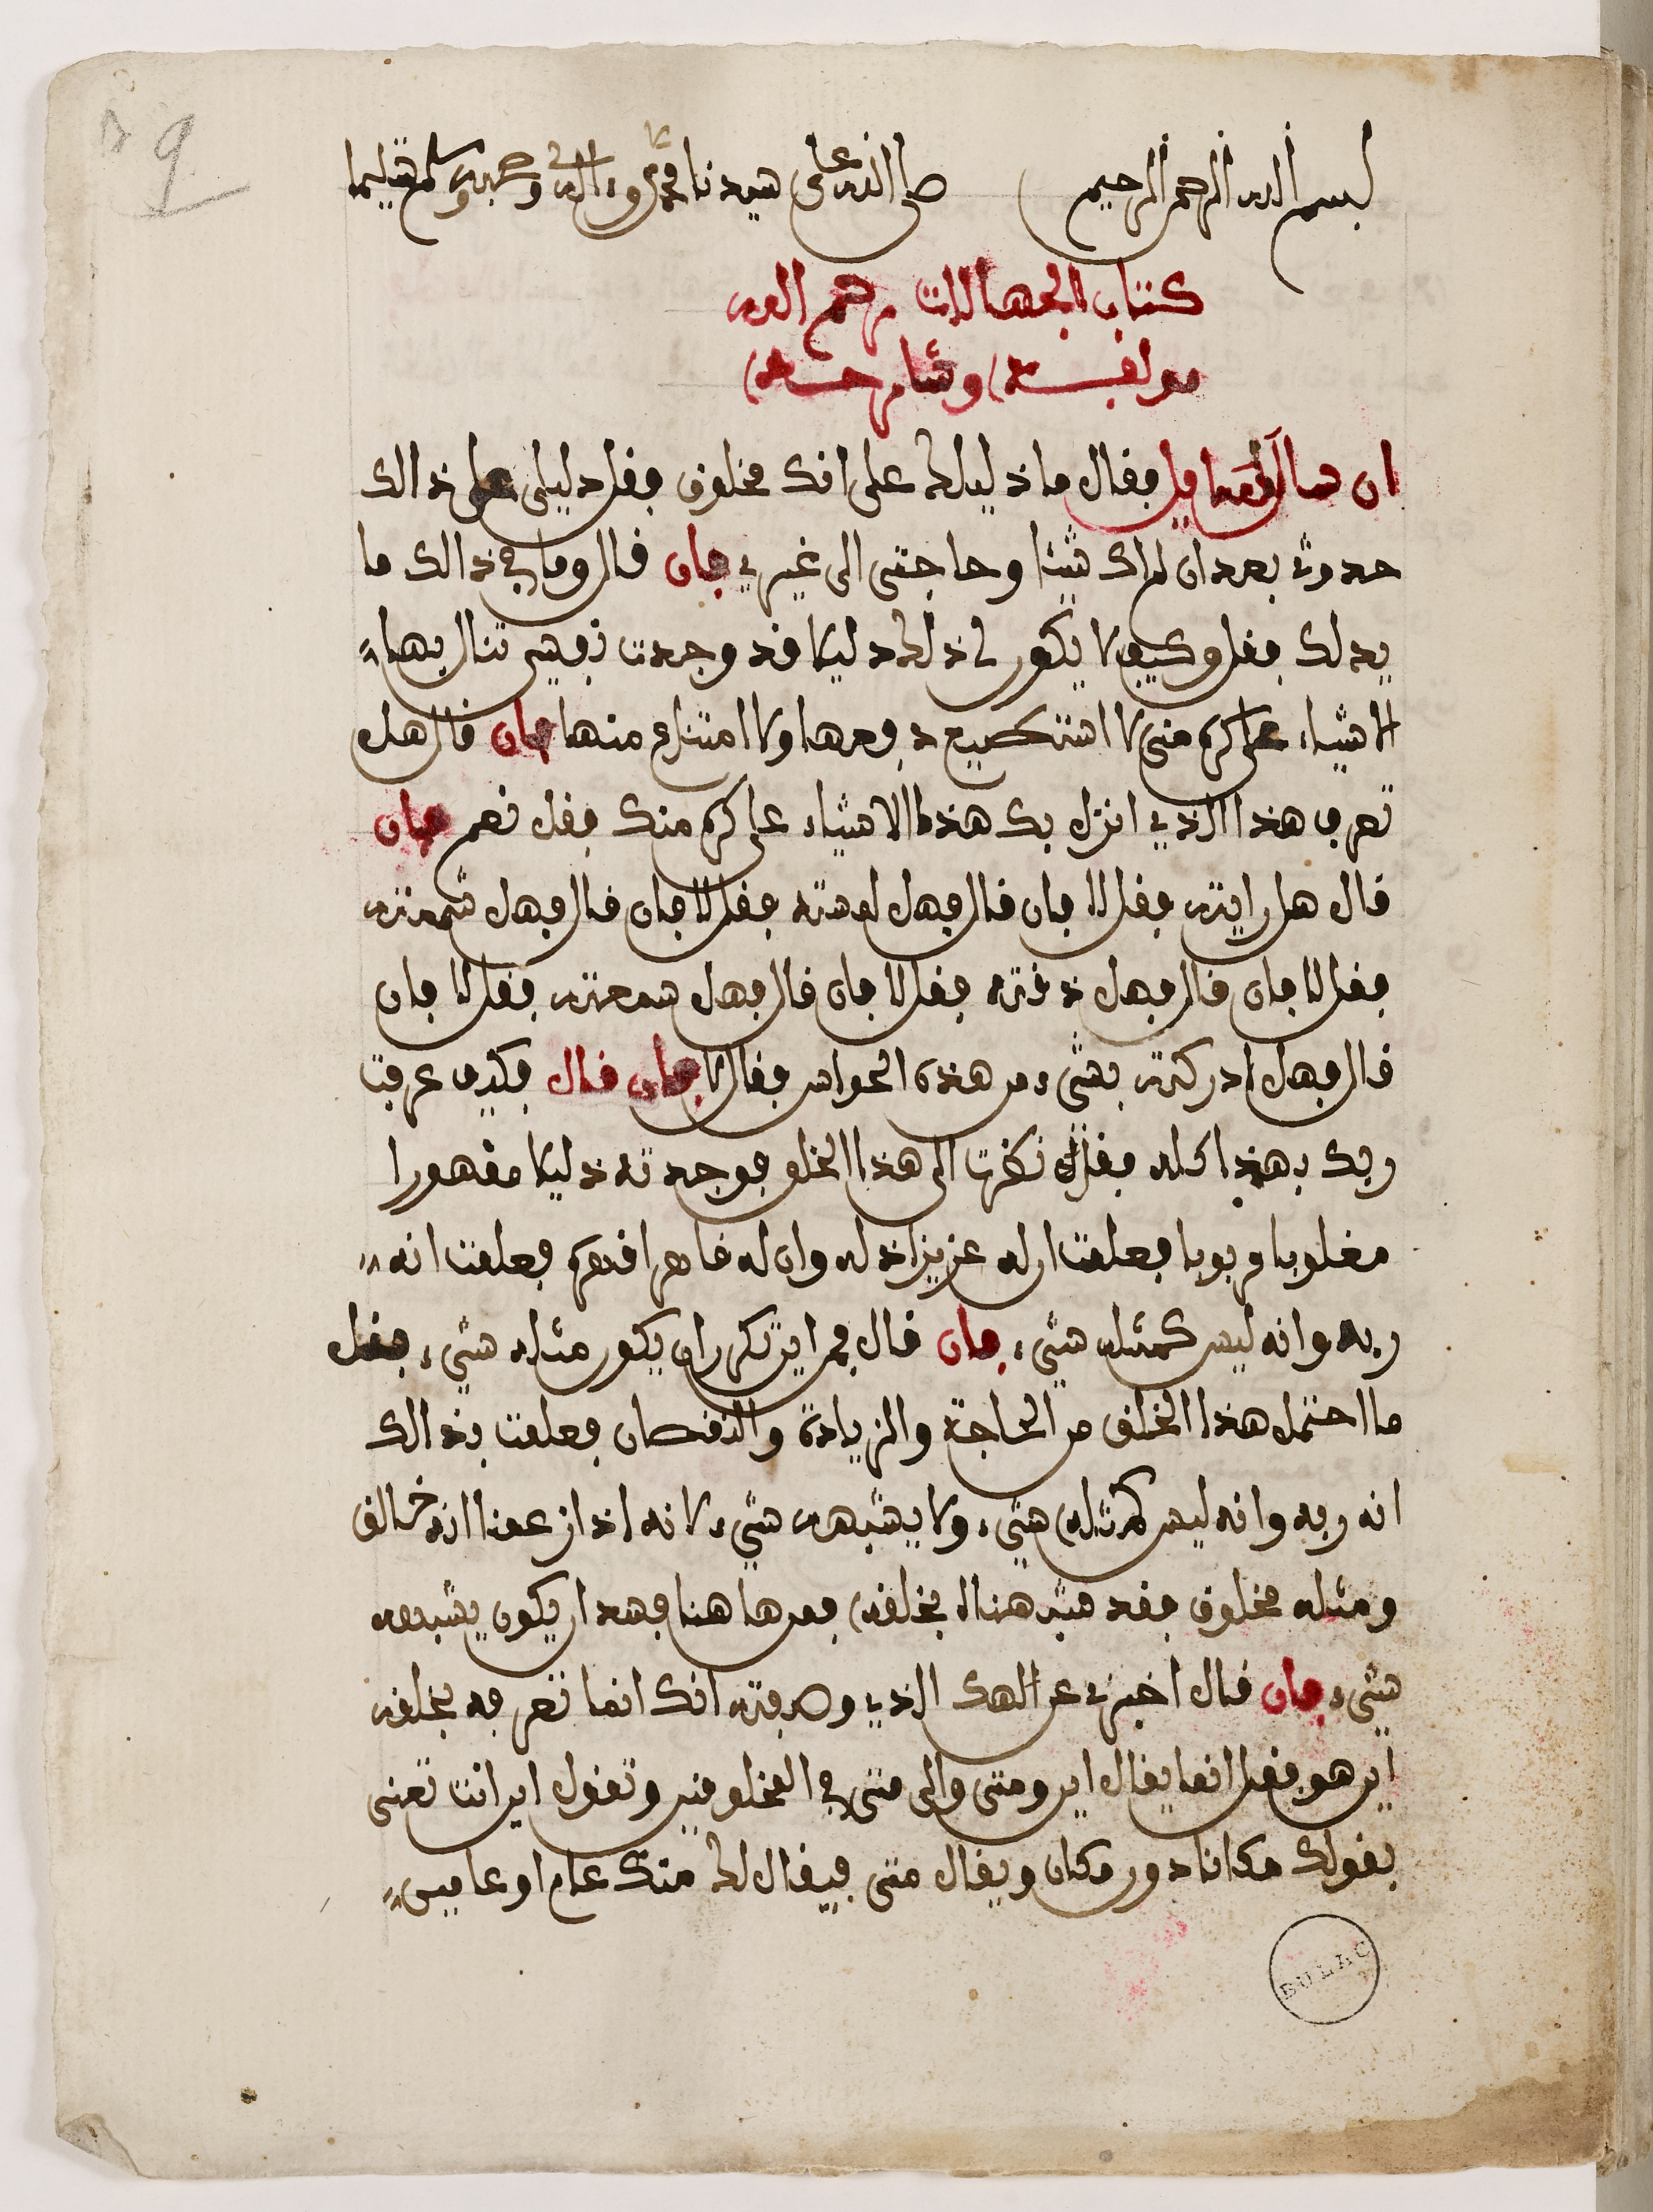 9
بسم الله الرحمن الرحيم صلى الله على سيدنا محمد وعلى ءاله وصحبه وسلم تسليما
كتاب الجهالات رحم الله
مولفه وشارحه
ان سالك سايل فقال ما دليلك على انك مخلوق فقل دليلي على ذالك
حدوثي بعد ان لم اك شيئا وحاجتي الى غيري فان قال وما في ذالك ما
يدلك فقل وكيف لا يكون لي ذلك دليلا وقد وجدت نفسي تنال بها
الاشياء على كره مني لا استطيع دفعها ولا امتناع منها فان قال هل
تعرف هذا الذي انزل بك هذه الاشياء على كره منك فقل نعم فان
قال هل رايته فقل لا فان قال فهل لمسته فقل لا فان قال فهل شممته
فقل لا فان قال فهل ذقته فقل لا فان قال فهل سمعته فقل لا فان
قال فهل ادركته بشيء من هذه الحواس فقال لا فان قال فكيف عرفت
ربك بهذا كله فقل نظرت الى هذا الخلق فوجدته ذليلا مقهورا
مغلوبا مربوبا فعلمت ان له عزيزا اذله وان له قاهرا قهره فعلمت انه
ربه وانه ليس كمثله شيء فان قال فمن اين تكره ان يكون مثله شيء فقل
ما احتمل هذا الخلق من الحاجة والزيادة والنقصان فعلمت بذالك
انه ربه وانه ليس كمثله شيء ولا يشبهه شيء لانه اذا زعمنا انه خالق
ومثله مخلوق فقد شبه هنا بخلقه فمن هاهنا فهذا ان يكون يشبهه
شيء فان قال اخبرني عن الهك الذي وصفته انك انما تعرفه بخلقه
اين هو فقل انما يقال اين ومتى والى متى في المخلوقين وتقول اين انت تعني
بقولك مكانا دون مكان ويقال متى فيقال لك منذ عام او عامين
BULAC